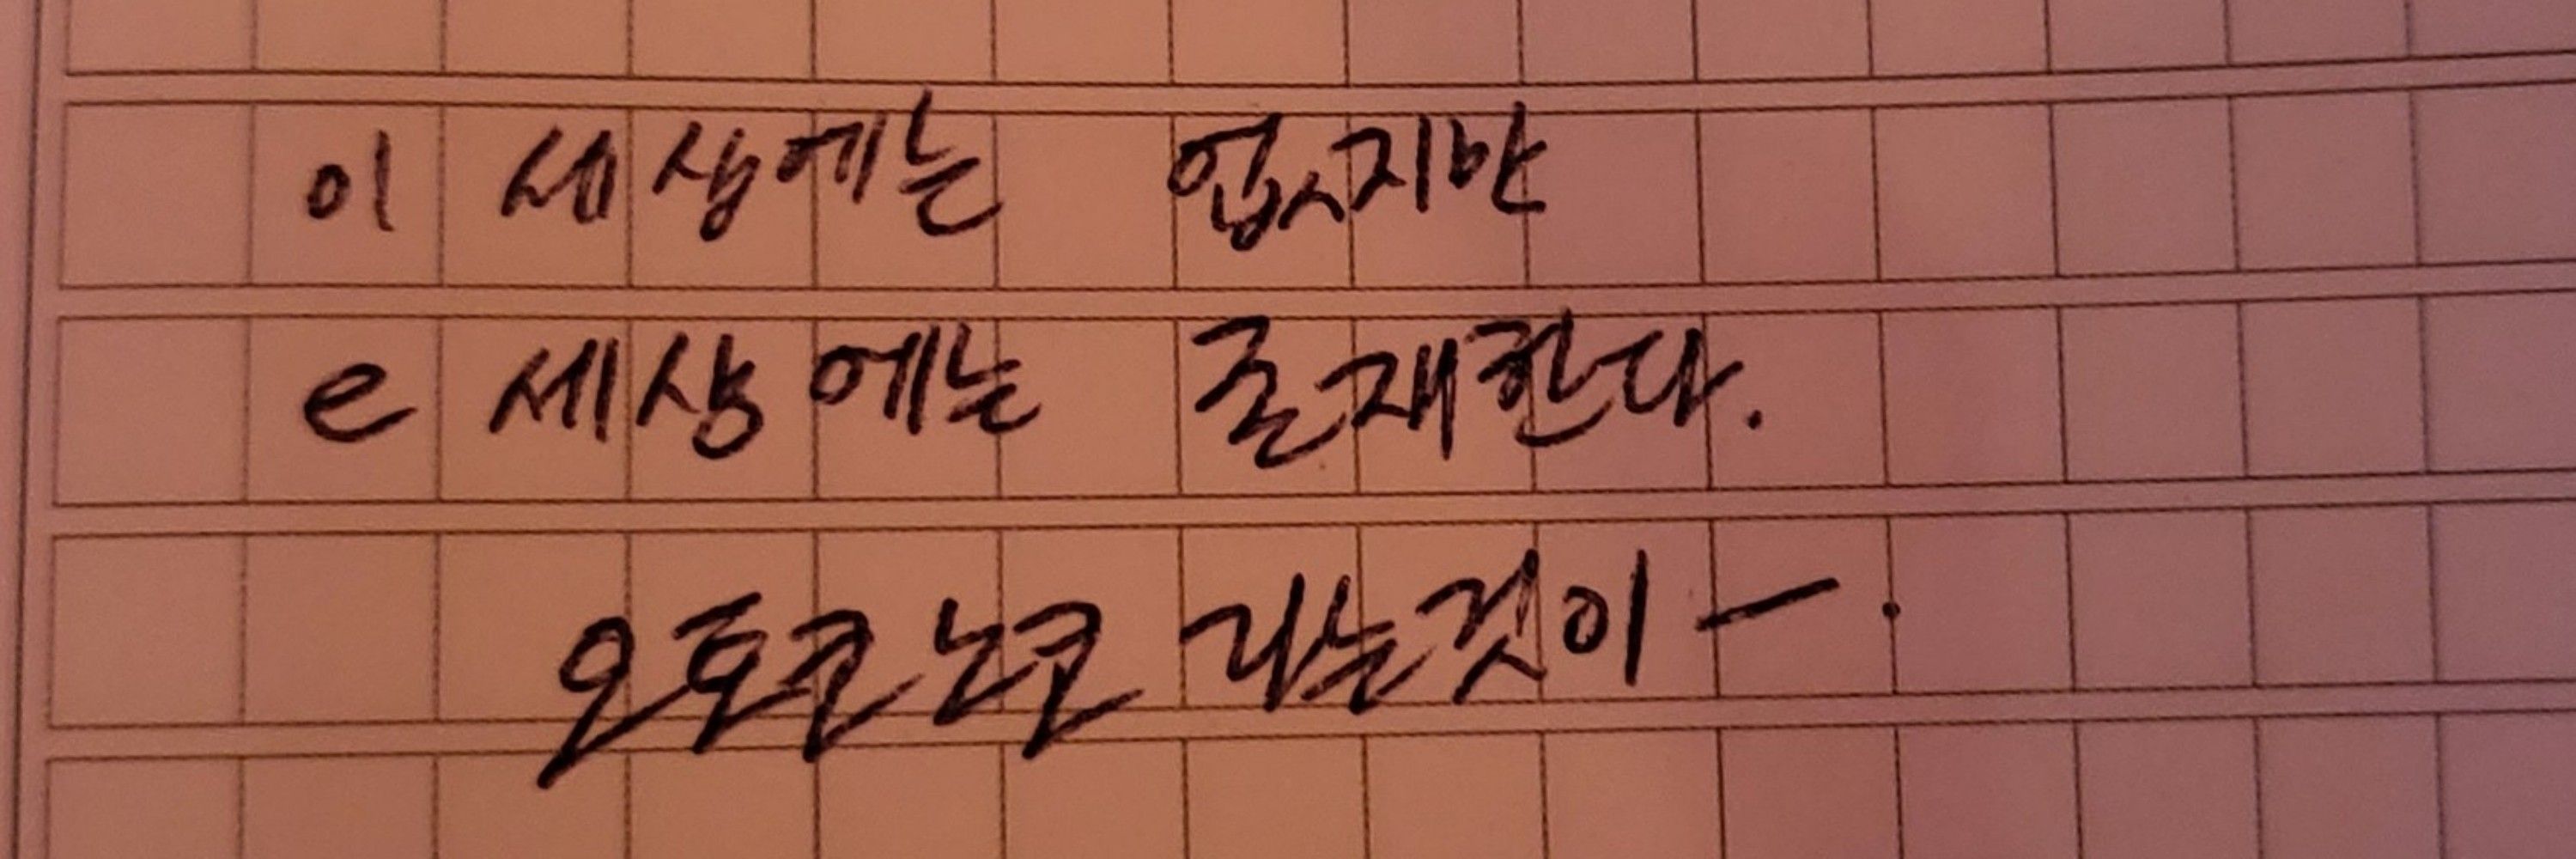 이 세상에는 없지만
e 세상에는 존재한다.
라는것이 ㅡ.